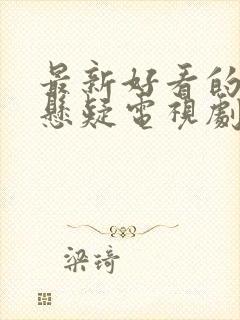 最新好看的
懸疑電視劇
梁琦